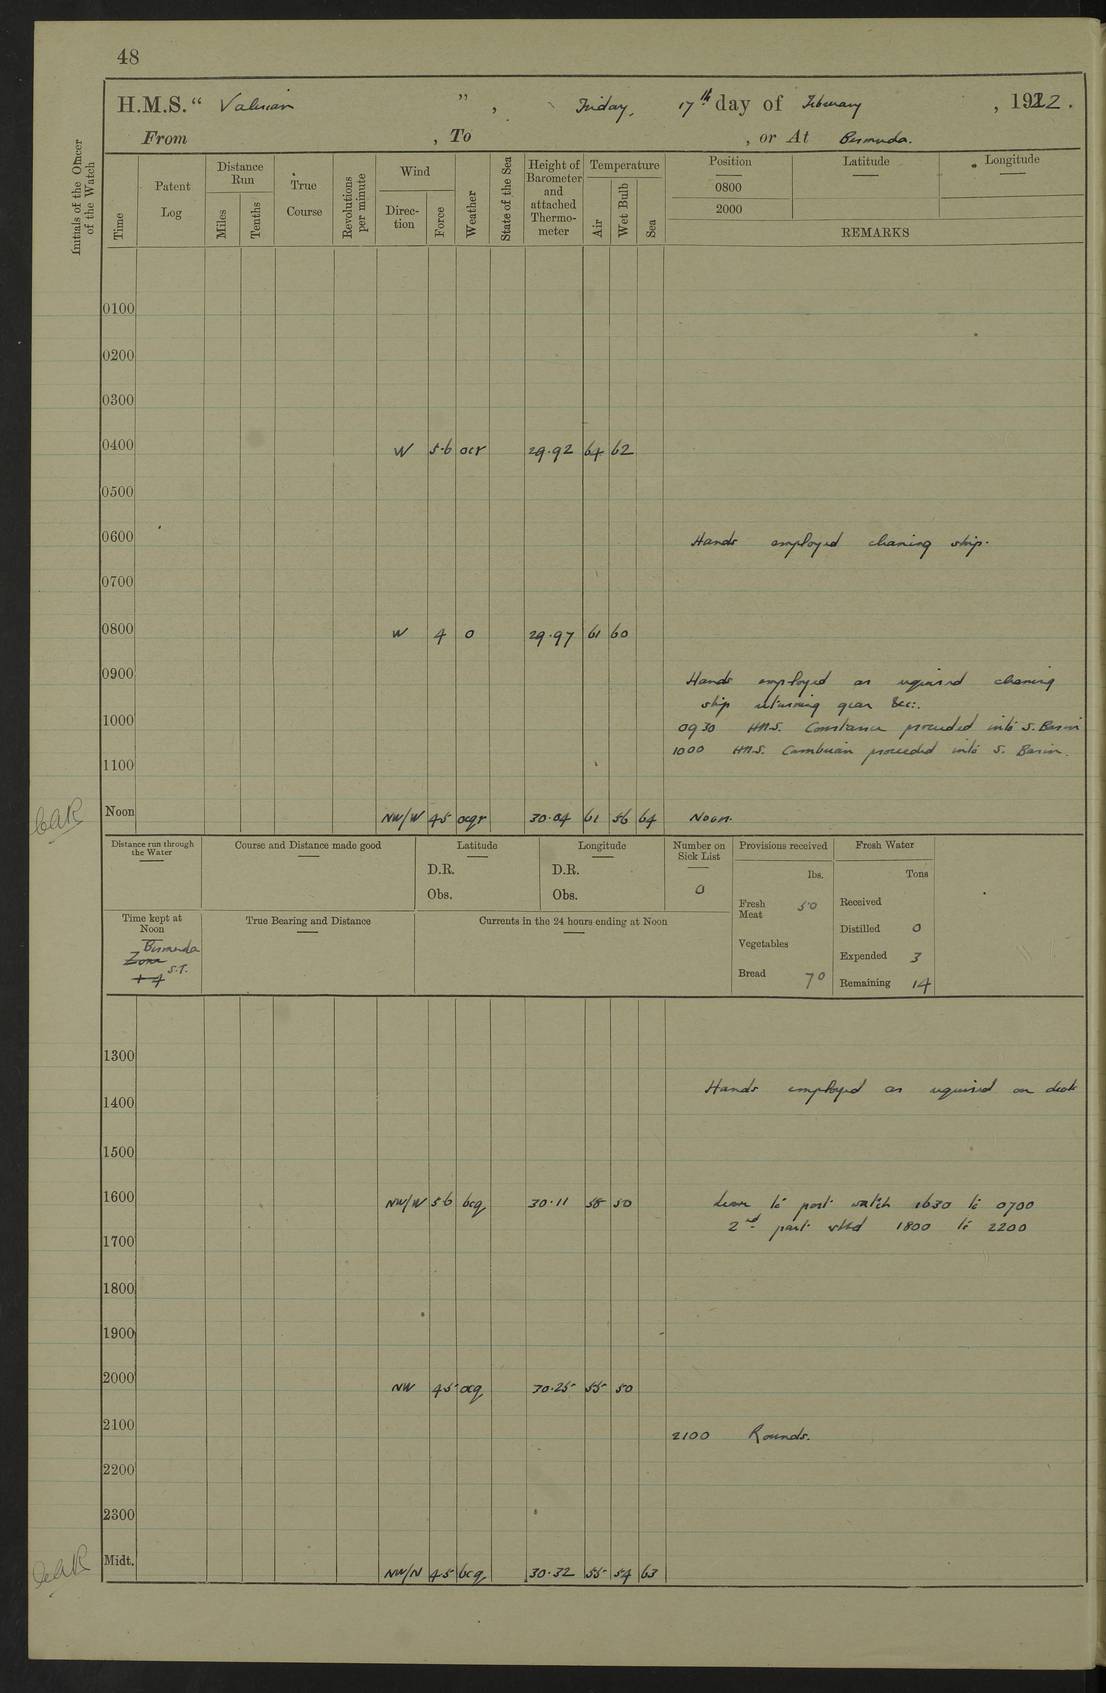 48
H.M.S. " Valerian " , Friday, 17th day of February , 1922.
From , To , or At Bermuda.
Initials of the Officer of the Watch
Time
Patent Log
Distance Run
Miles
Tenths
True Course
Revolutions per minute
Wind
Direc-tion
Force
Weather
State of the Sea
Height of Barometer and attached Thermo-meter
Temperature
Air
Wet Bulb
Sea
Position
0800
2000
Latitude
Longitude
REMARKS
0100
0200
0300
0400 W 5·6 ocr 29·92 64 62
0500
0600 Hands employed cleaning ship.
0700
0800 W 4 o 29·97 61 60
0900 Hands employed as required cleaning
ship returning gear &c:.
1000 0930 H.M.S. Constance proceeded into S. Basin
1000 H.M.S. Cambrian proceeded into S. Basin.
1100
Noon NW/W 4·5 ocqr 30·04 61 56 64 Noon.
Distance run through the Water
Course and Distance made good
Latitude
D.R.
Obs.
Longitude
D.R.
Obs.
Number on Sick List
0
Provisions received
lbs.
Fresh Meat 50
Vegetables
Bread 70
Fresh Water
Tons
Received
Distilled 0
Expended 3
Remaining 14
Time kept at Noon
Bermuda
Zone S.T.
+4
True Bearing and Distance
Currents in the 24 hours ending at Noon
1300
Hands employed as required on deck
1400
1500
1600 NW/W 5·6 bcq 30·11 58 50 Leave to port watch 1630 to 0700
2nd part stbd 1800 to 2200
1700
1800
1900
2000 NW 4·5 ocq 30·25 55 50
2100 2100 Rounds.
2200
2300
Midt. NW/N 4·5 bcq 30·32 55 54 63